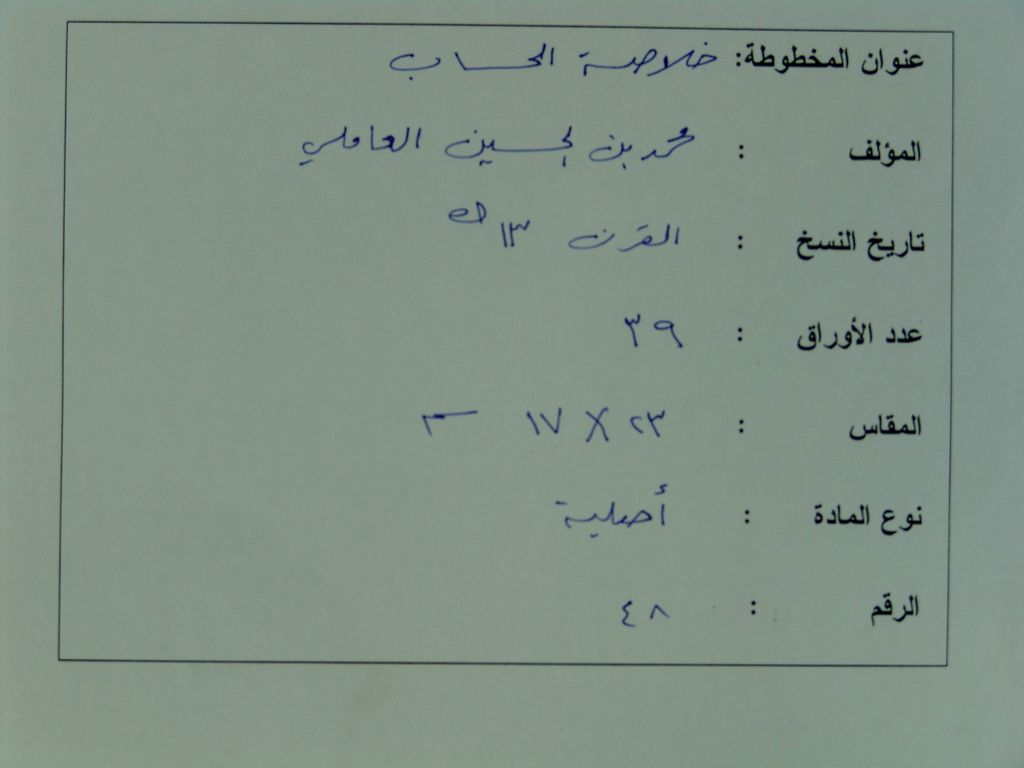 عنوان المخطوطة: خلاصة الحساب
المؤلف : محمد بن الحسين العاملي
تاريخ النسخ : القرن ١٣ هـ
عدد الأوراق : ٣٩
المقاس : ٢٣ X ١٧ سم
نوع المادة : أصلية
الرقم : ٤٨